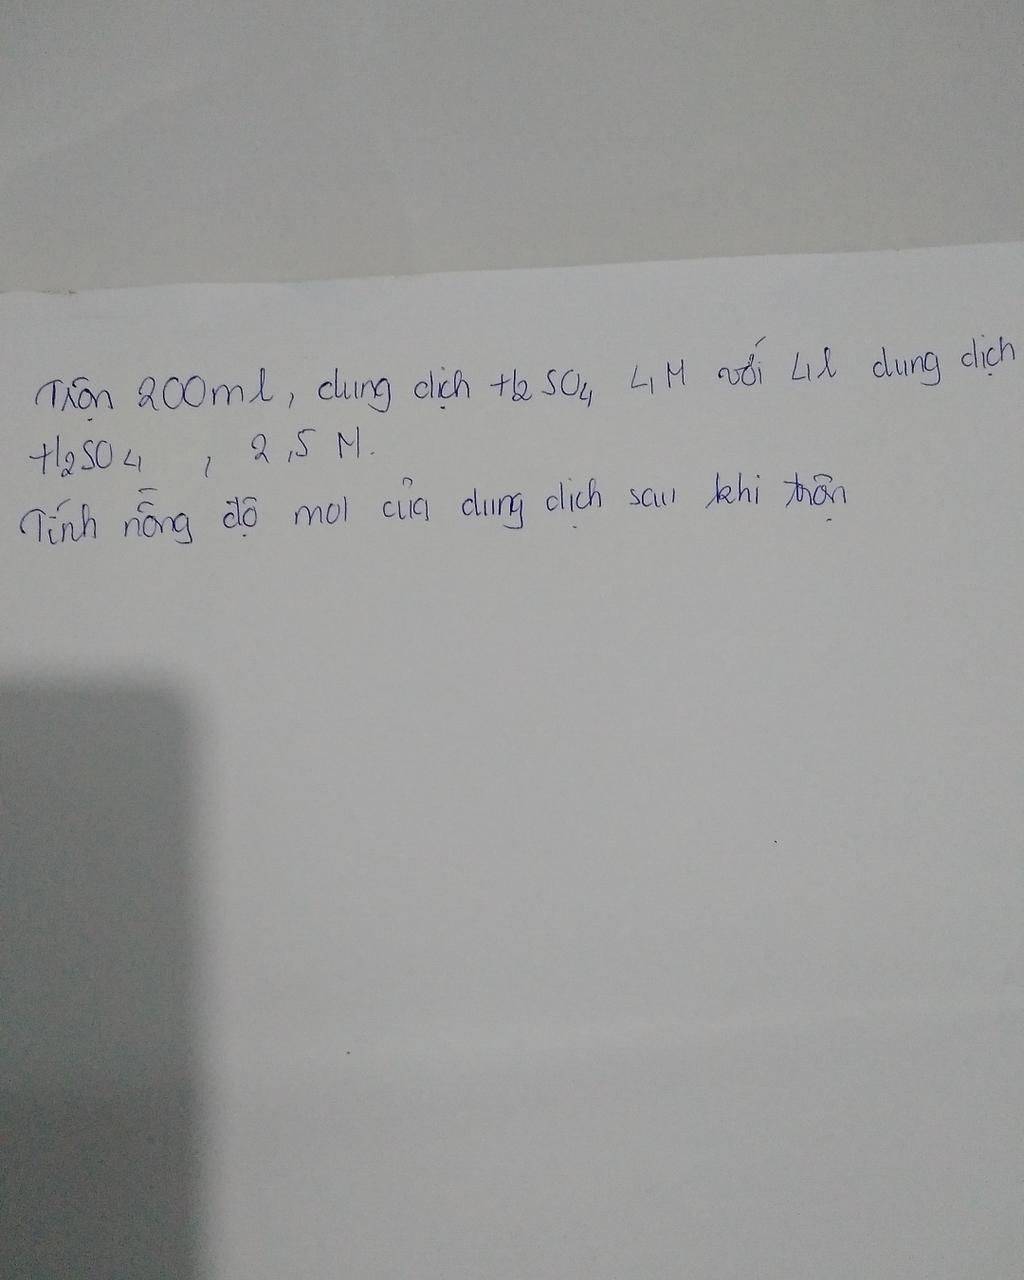 Trộn 200ml, dung dịch H2SO4 4M với 4l dung dịch
H2SO4 , 2,5 M.
Tính nồng độ mol của dung dịch sau khi trộn